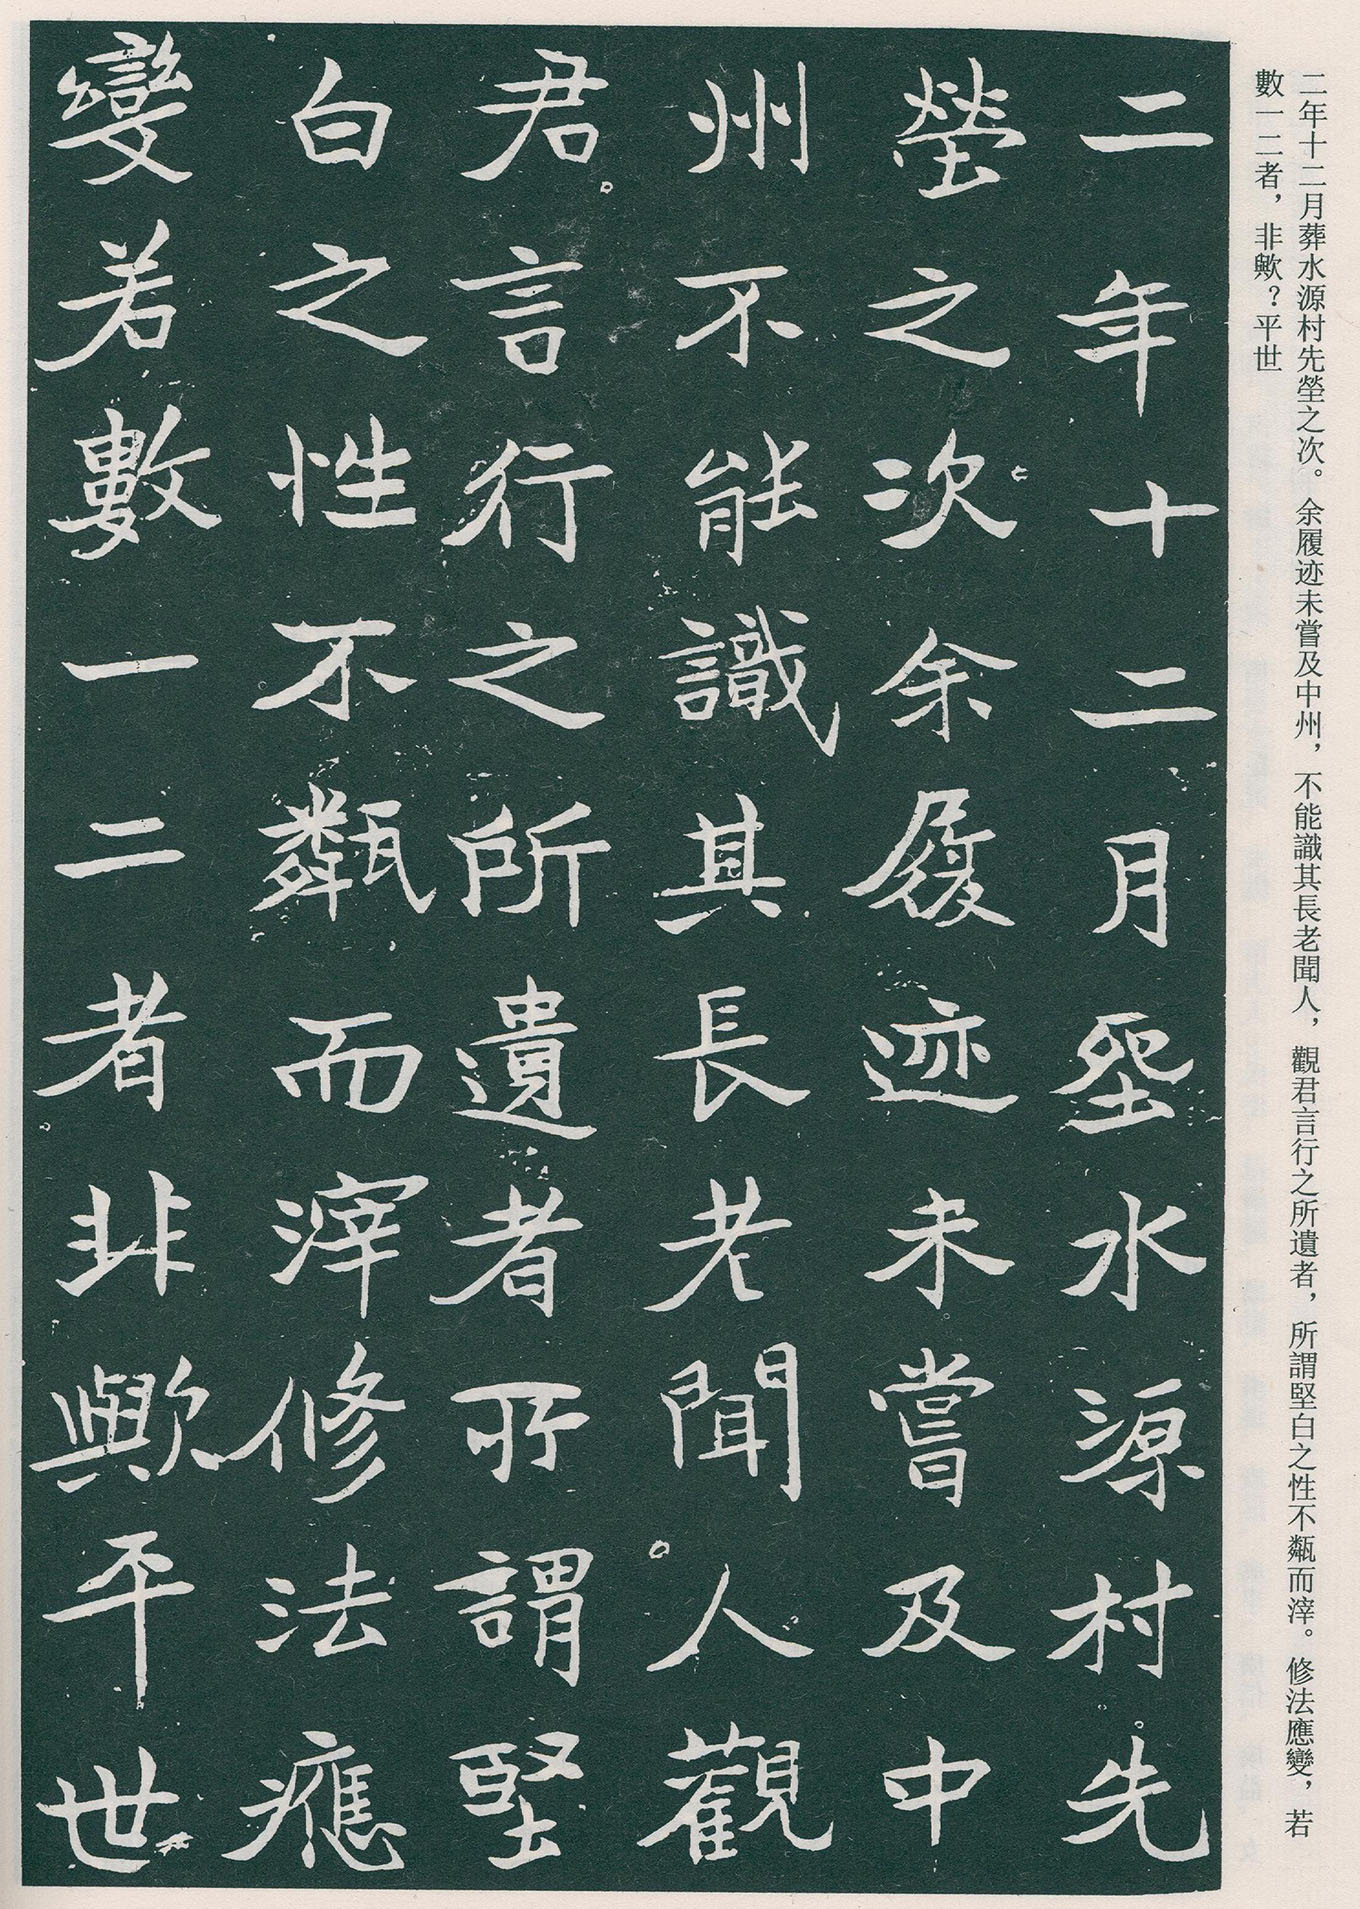 二年十二月葬水源村先塋之次。余履迹未嘗及中州，不能識其長老聞人，觀君言行之所遺者，所謂堅白之性不甐而滓。修法應變，若
數一二者，非歟？平世
二年十二月塟水源村先
塋之次余履迹未嘗及中
州不能識其長老聞人觀
君言行之所遺者所謂堅
白之性不甐而滓修法應
變若數一二者非歟平世